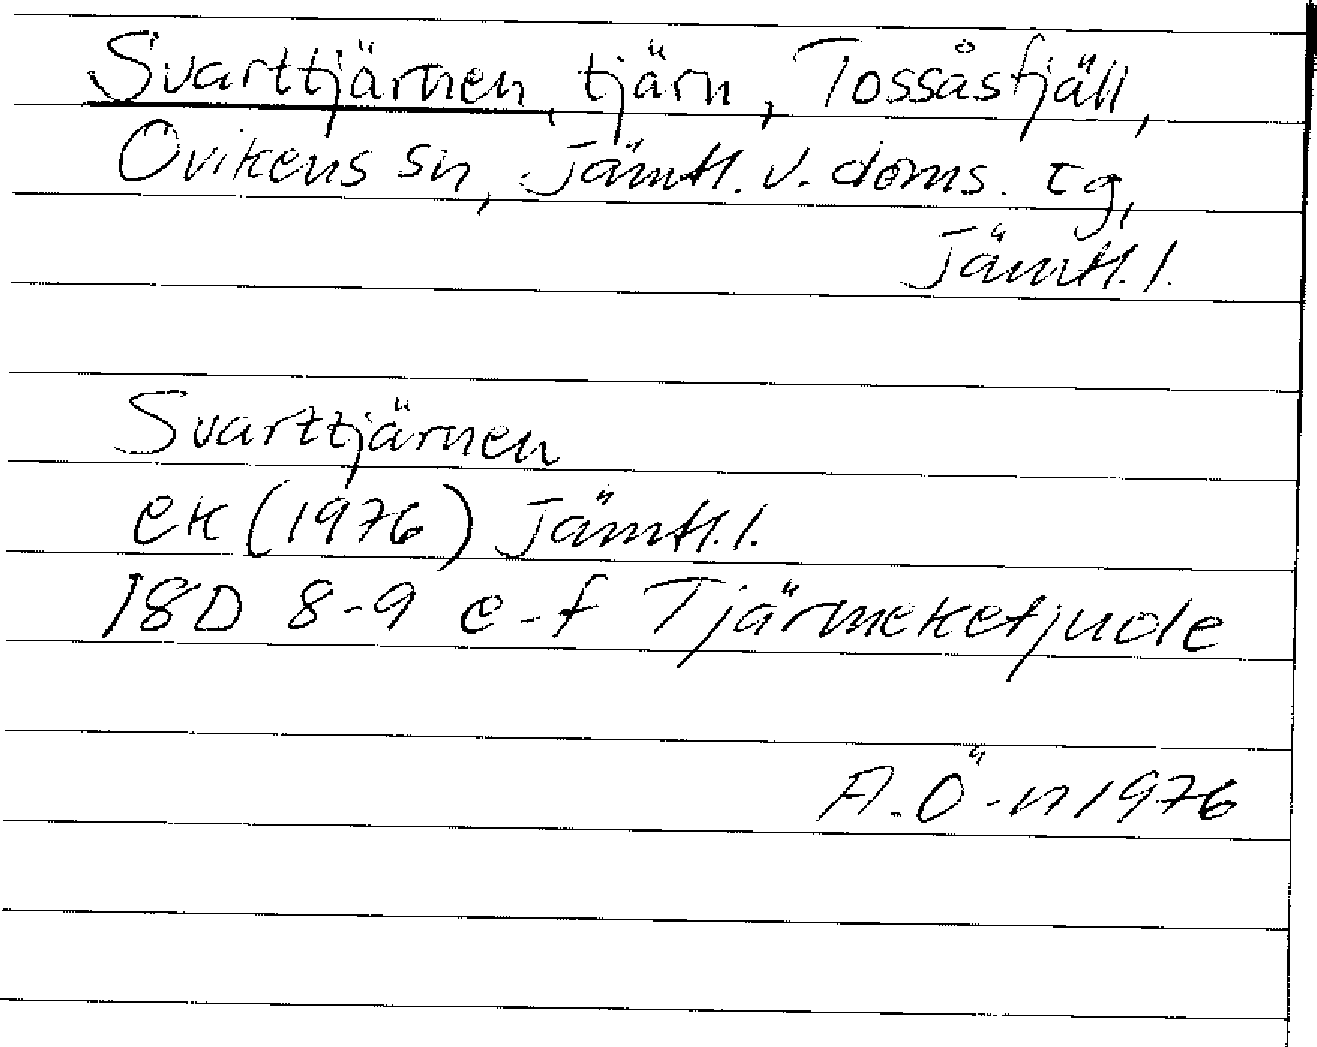 Svarttjärnen, tjärn, Tossåsfjäll,
Ovikens sn, Jämtl. v. doms. tg,
Jämtl. l.
Svarttjärnen
ek (1976) Jämtl. l.
18D 8-9 e-f Tjärmeketjuole
A. Ö-n 1976